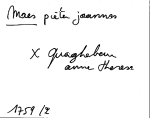 Maes pieter joannes
X Quaghebeur
anne therese
1759/2